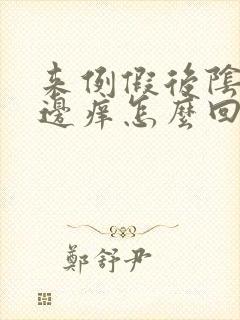 来例假後陰
邊痒怎麼回
鄭舒尹